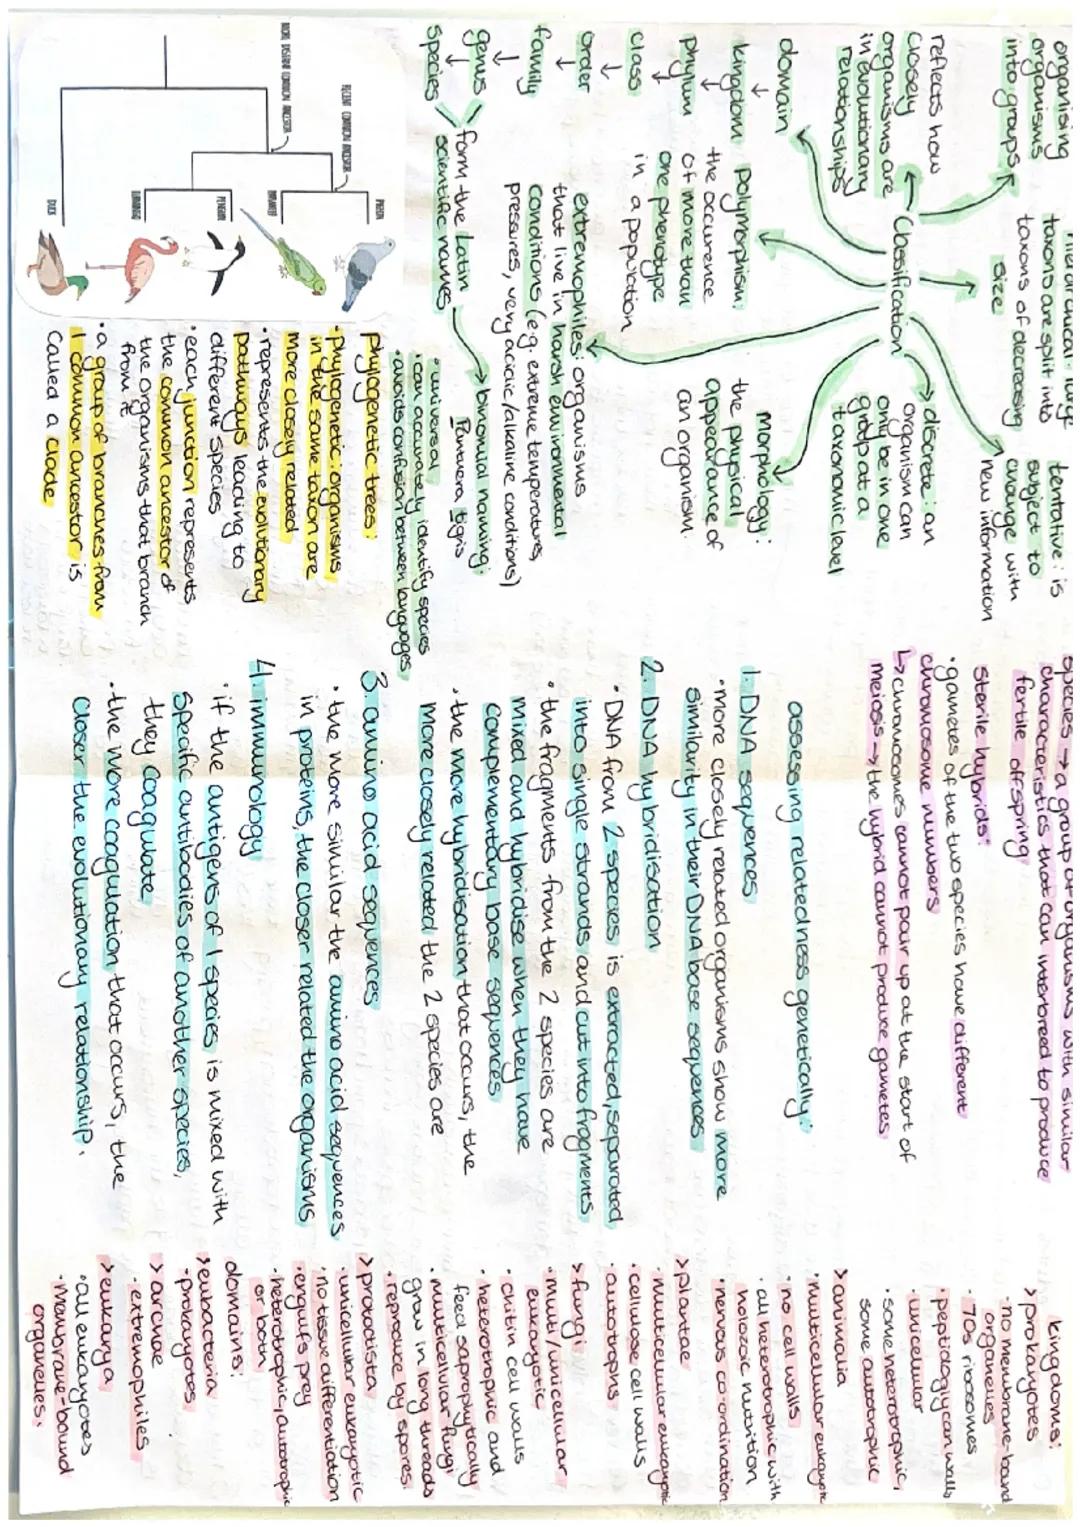 organising
organisms
into groups
hierarchical: large
taxons are split into
taxons of decreasing
size
tentative: is
subject to
change with
new information
reflects how
closely
organisms are
in evolutionary
relationships
Classification
discrete: an
organism can
only be in one
group at a
taxonomic level
domain
↓
kingdom
↓
phylum
↓
class
↓
order
↓
family
↓
genus
↓
species
polymorphism:
the occurrence
of more than
one phenotype
in a population
morphology:
the physical
appearance of
an organism.
extremophiles: organisms
that live in harsh environmental
conditions (e.g. extreme temperatures,
pressures, very acidic/alkaline conditions)
form the latin
scientific names
binomial naming:
Pantvera tigris
• universal
• can accurately identify species
• avoids confusion between languages
MORE DISTANT COMMON ANCESTOR
RECENT COMMON ANCESTOR
PIGEON
PARAKEET
PENGUIN
FLAMINGO
DUCK
phylogenetic trees:
• phylogenetic: organisms
in the same taxon are
more closely related
• represents the evolutionary
pathways leading to
different species
• each junction represents
the common ancestor of
the organisms that branch
from it
• a group of branches from
1 common ancestor is
called a clade
species → a group of organisms with similar
characteristics that can interbreed to produce
fertile offspring
sterile hybrids:
• gametes of the two species have different
chromosome numbers
↳ chromosomes cannot pair up at the start of
meiosis → the hybrid cannot produce gametes
assessing relatedness genetically:
1. DNA sequences
• more closely related organisms show more
similarity in their DNA base sequences
2. DNA hybridisation
• DNA from 2 species is extracted, separated,
into single strands and cut into fragments
• the fragments from the 2 species are
mixed and hybridise when they have
complementary base sequences
• the more hybridisation that occurs, the
more closely related the 2 species are
3. amino acid sequences
• the more similar the amino acid sequences
in proteins, the closer related the organisms
4. immunology
• if the antigens of 1 species is mixed with
specific antibodies of another species,
they coagulate
• the more coagulation that occurs, the
closer the evolutionary relationship.
kingdoms:
> prokaryotes
• no membrane-bound
organelles
• 70s ribosomes
• peptidoglycan walls
• unicellular
• some heterotrophic,
some autotrophic
> animalia
• multicellular eukaryotic
• no cell walls
• all heterotrophic with
holozoic nutrition
• nervous co-ordination
> plantae
• multicellular eukaryotic
• cellulose cell walls
• autotrophs
> fungi
• multi/unicellular
eukaryotic
• chitin cell walls
• heterotrophic and
feed saprophytically
• multicellular fungi
grow in long threads
• reproduce by spores
> protoctista
• unicellular eukaryotic
• no tissue differentiation
• engulfs prey
• heterotrophic, autotrophic
or both
domains:
> eubacteria
• prokaryotes
> archae
• extremophiles
> eukarya
• all eukaryotes
• membrane-bound
organelles.